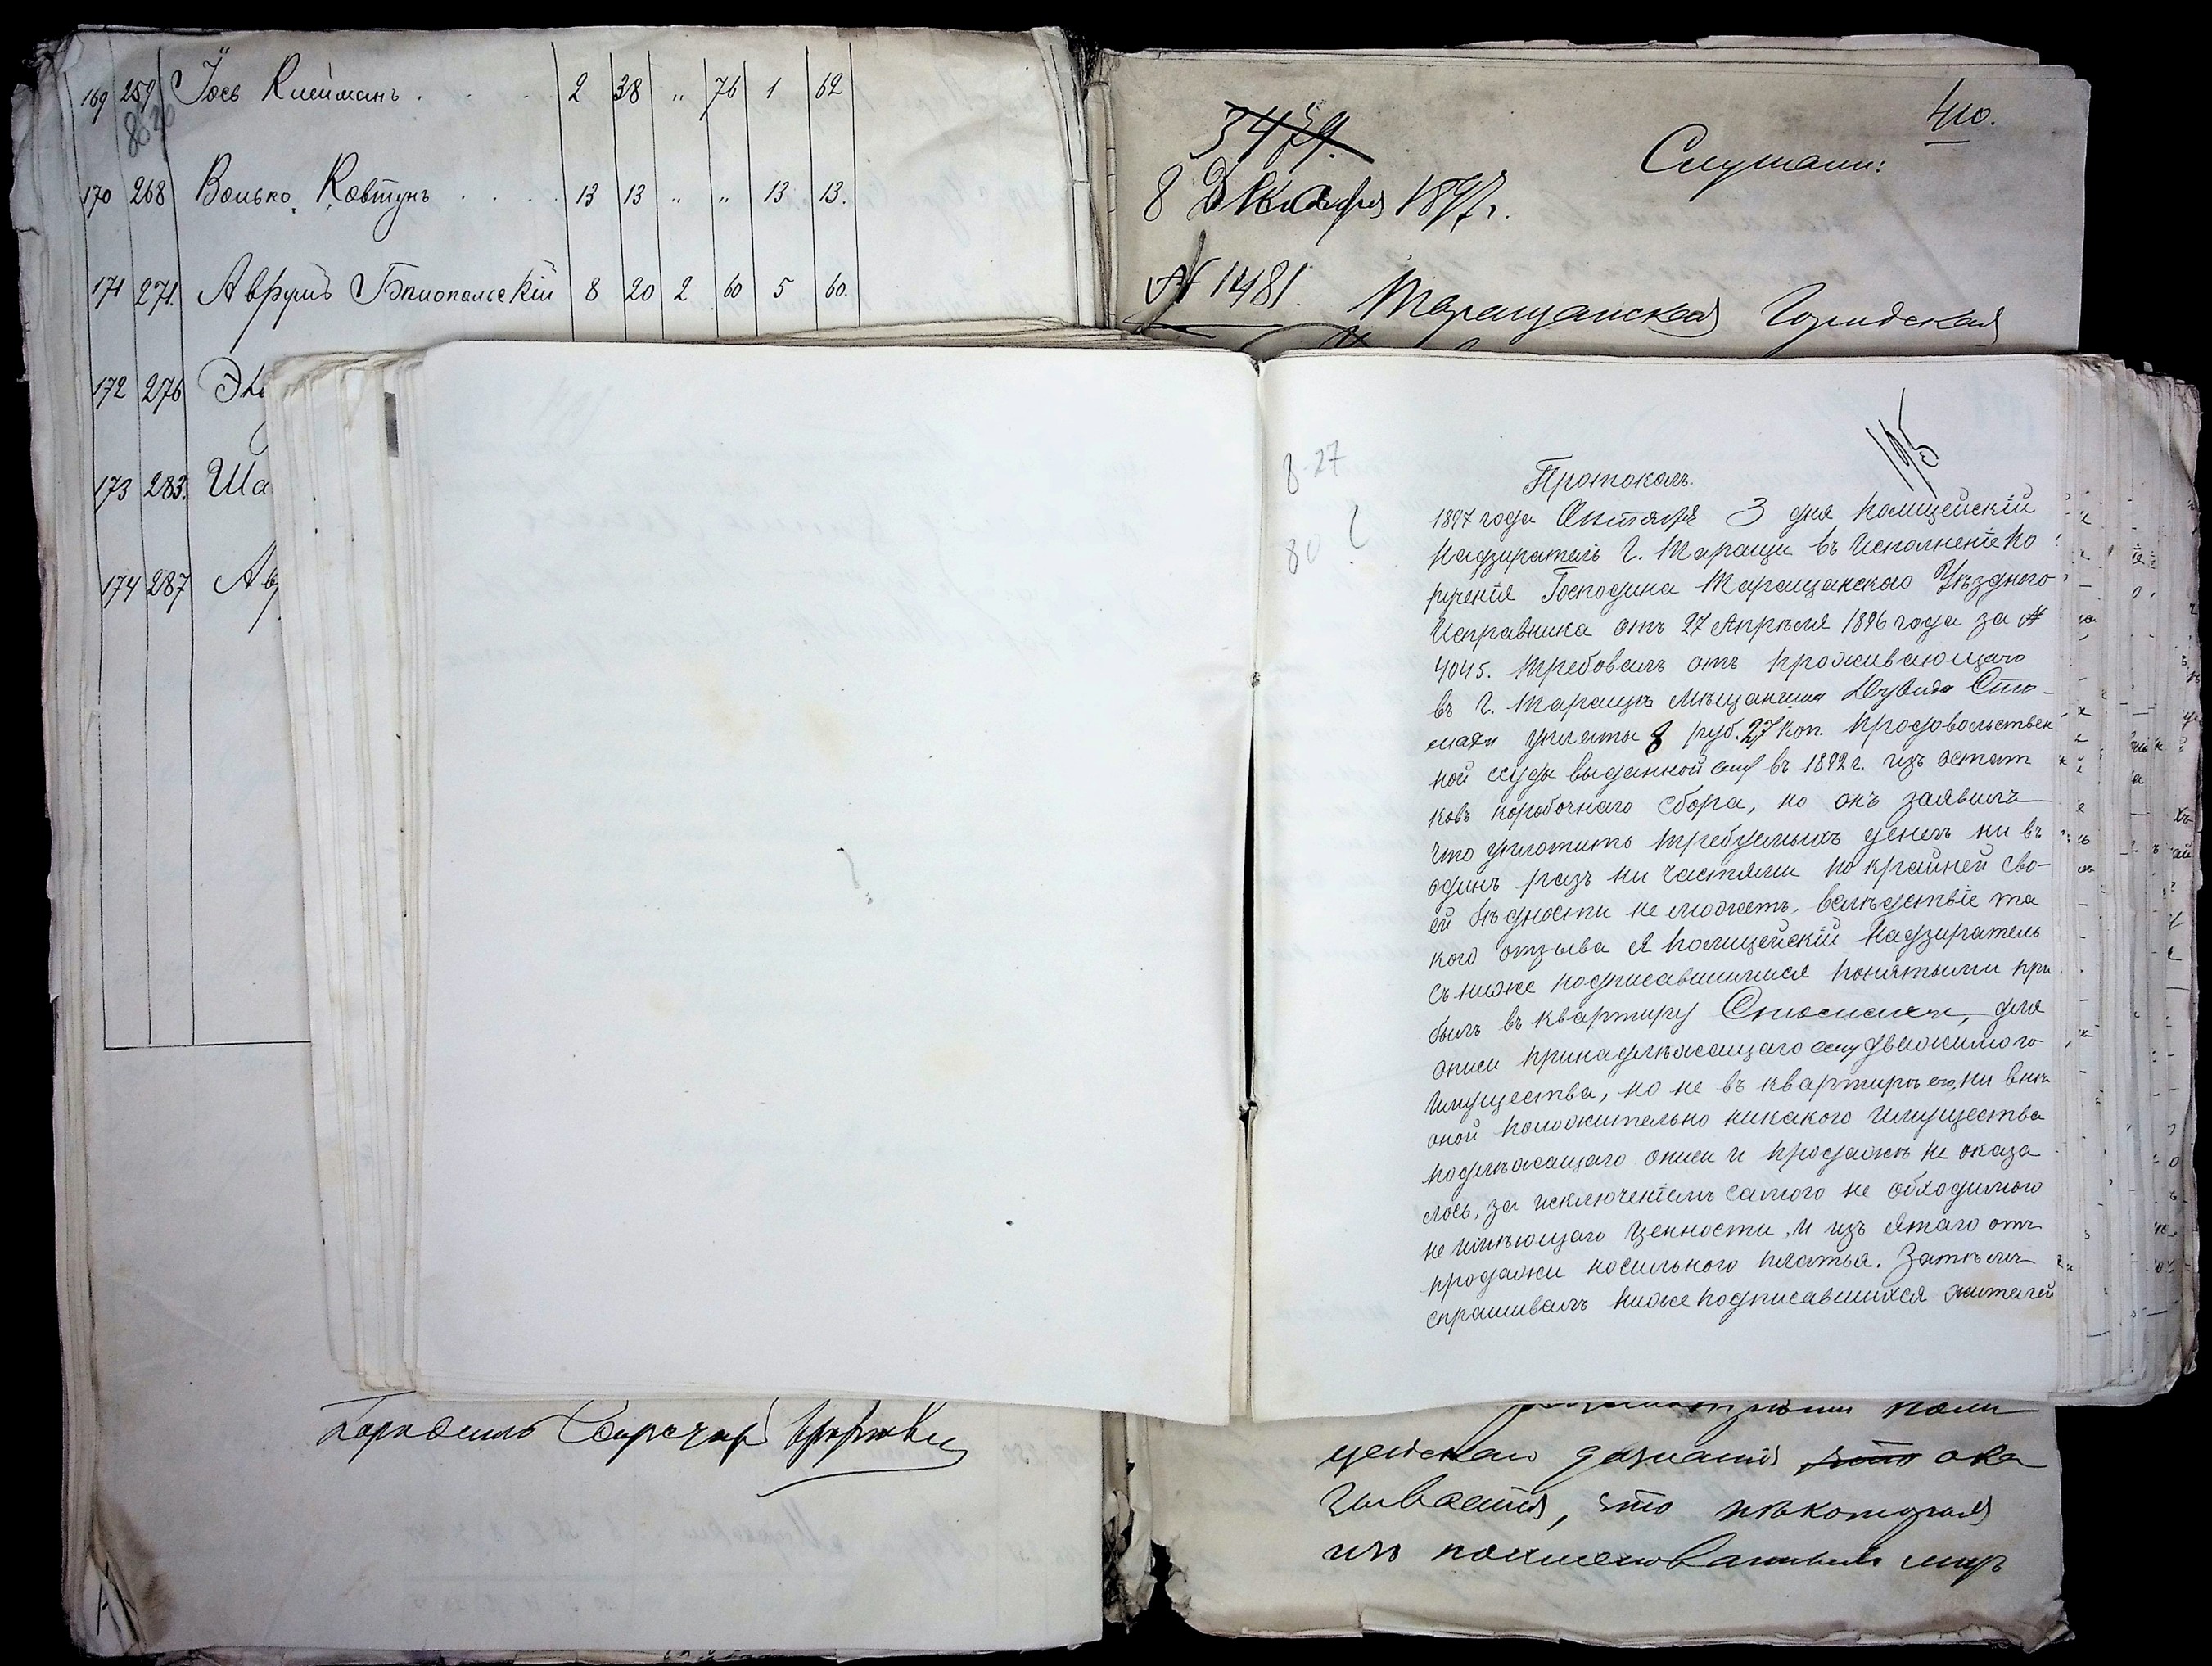 169 259 Іось Клейманъ . . . 2 38 „ 76 1 62
170 268 Волько Ковтунъ . . . . 13 13 „ „ 13 13.
171 271. Аврумъ Бѣлопольскій 8 20 2 60 5 60.
172 276
173 283. Ша
174 287 Ав
410.
3479.
Слушали:
8 Декабря 1897 г.
№ 1481.
Таращанская Городская
195
8-27
80
Протоколъ.
1897 года Октября 3 дня Полицейскій
Надзиратель г. Таращи въ исполненіе по
рученія Господина Таращанского Уѣздного
Исправника отъ 27 Апрѣля 1896 года за №
4045. требовалъ отъ проживающаго
въ г. Таращѣ мѣщанина Дувида
уплаты 8 руб. 27 коп. продовольствен
ной ссуды выданной ему въ 1892 г. изъ остат
ковъ коробочнаго сбора, но онъ заявилъ
что уплотить требуемыхъ денегъ ни въ
одинъ разъ ни частями по крайней сво-
ей бѣдности не можетъ, вслѣдствіе та
кого отзыва я Полицейскій Надзиратель
съ ниже подписавшимися понятыми при
былъ въ квартиру для
описи принадлѣжащаго ему движимого
имущества, но не въ квартирѣ его, ни внѣ
оной положительно никакого имущества
подлѣжащаго описи и продажѣ не оказа
лось, за исключеніемъ самого не обходимого
не имѣющаго ценности и изъ ятаго отъ
продажи носильного платья. Затѣмъ
спрашивалъ ниже подписавшихся жителей
поли
цейскаго дознанія ока
зывается, что нѣкоторыя
изъ поименованныхъ лицъ